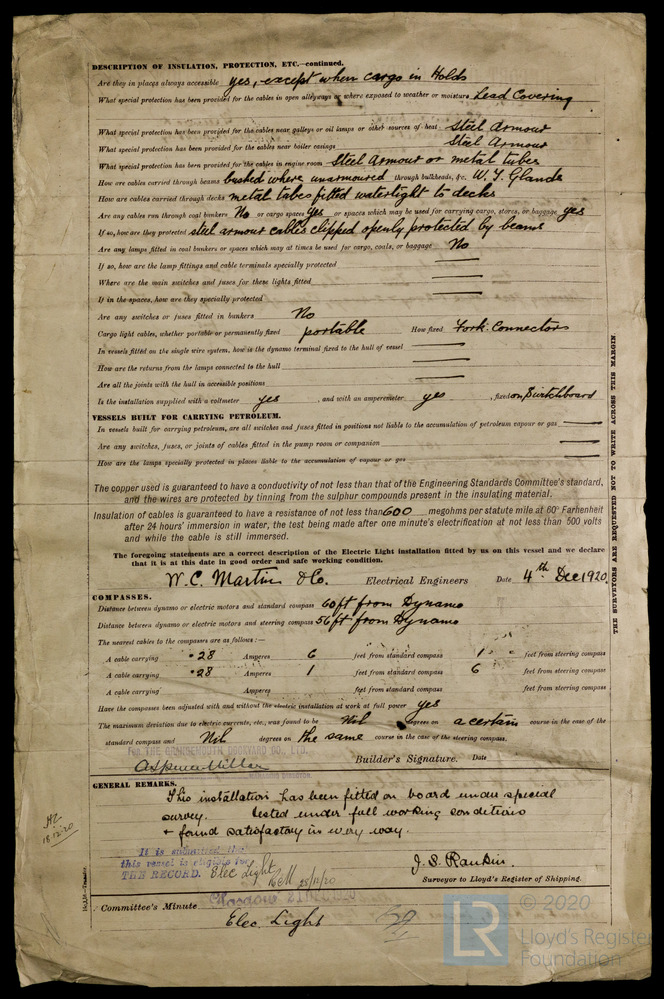 DESCRIPTION OF INSULATION, PROTECTION, ETC.—continued.
Are they in places always accessible yes, except when cargo in Holds
What special protection has been provided for the cables in open alleyways or where exposed to weather or moisture Lead Covering
What special protection has been provided for the cables near galleys or oil lamps or other sources of heat Steel Armour
What special protection has been provided for the cables near boiler casings Steel Armour
What special protection has been provided for the cables in engine room Steel Armour or metal tubes
How are cables carried through beams bushed where unarmoured through bulkheads, &c. W.T. Glands
How are cables carried through decks metal tubes fitted watertight to decks
Are any cables run through coal bunkers No or cargo spaces yes or spaces which may be used for carrying cargo, stores, or baggage yes
If so, how are they protected steel armour cables clipped openly protected by beams
Are any lamps fitted in coal bunkers or spaces which may at times be used for cargo, coals, or baggage No
If so, how are the lamp fittings and cable terminals specially protected
Where are the main switches and fuses for these lights fitted
If in the spaces, how are they specially protected
Are any switches or fuses fitted in bunkers No
Cargo light cables, whether portable or permanently fixed portable How fixed Fork Connectors
In vessels fitted on the single wire system, how is the dynamo terminal fixed to the hull of vessel
How are the returns from the lamps connected to the hull
Are all the joints with the hull in accessible positions
Is the installation supplied with a voltmeter yes , and with an amperemeter yes , fixed on Switchboard
VESSELS BUILT FOR CARRYING PETROLEUM.
In vessels built for carrying petroleum, are all switches and fuses fitted in positions not liable to the accumulation of petroleum vapour or gas
Are any switches, fuses, or joints of cables fitted in the pump room or companion
How are the lamps specially protected in places liable to the accumulation of vapour or gas
The copper used is guaranteed to have a conductivity of not less than that of the Engineering Standards Committee's standard,
and the wires are protected by tinning from the sulphur compounds present in the insulating material.
Insulation of cables is guaranteed to have a resistance of not less than 600 megohms per statute mile at 60° Farhenheit
after 24 hours' immersion in water, the test being made after one minute's electrification at not less than 500 volts
and while the cable is still immersed.
The foregoing statements are a correct description of the Electric Light installation fitted by us on this vessel and we declare
that it is at this date in good order and safe working condition.
W.C. Martin & Co. Electrical Engineers Date 4th Dec 1920.
COMPASSES.
Distance between dynamo or electric motors and standard compass 60ft from Dynamo
Distance between dynamo or electric motors and steering compass 56ft from Dynamo
The nearest cables to the compasses are as follows:—
A cable carrying .28 Amperes 6 feet from standard compass 1 feet from steering compass
A cable carrying .28 Amperes 1 feet from standard compass 6 feet from steering compass
A cable carrying Amperes feet from standard compass feet from steering compass
Have the compasses been adjusted with and without the electric installation at work at full power yes
The maximum deviation due to electric currents, etc., was found to be Nil degrees on a certain course in the case of the
standard compass and Nil degrees on the same course in the case of the steering compass.
FOR THE GRANGEMOUTH DOCKYARD CO., LTD.
Builder's Signature. Date
GENERAL REMARKS.
This installation has been fitted on board under special
survey. Tested under full working conditions
& found satisfactory in every way.
18.12.20
It is submitted that
this vessel is eligible for
THE RECORD. Elec Light
J. S. Rankin.
Surveyor to Lloyd's Register of Shipping.
Committee's Minute Glasgow
Elec. Light
THE SURVEYORS ARE REQUESTED NOT TO WRITE ACROSS THIS MARGIN.
LR
© 2020
Lloyd's Register
Foundation